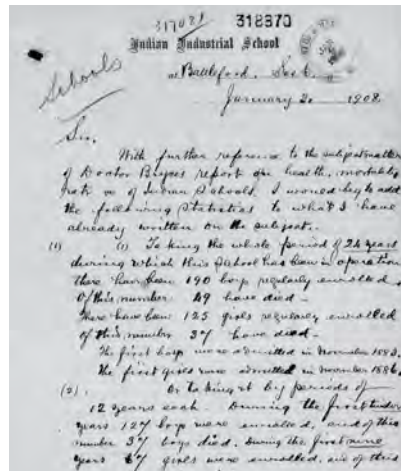 317021
318370
Indian Industrial School
Schools
at Battleford, Sask.
January 2. 1908.
Sir,
With further reference to the subject matter
of Doctor Bryces report on health, mortality
rate &c of Indian Schools. I would beg to add
the following statistics to what I have
already written on the subject.
(1) (1) Taking the whole period of 24 years
during which this School has been in operation
there have been 190 boys regularly enrolled
Of this number 49 have died-
There have been 125 girls regularly enrolled
of this number 37 have died-
The first boys were admitted in November 1883.
The first girls were admitted in November 1886.
(2). Or taking it by periods of
12 years each. During the first twelve
years 127 boys were enrolled, and of this
number 37 boys died. During the first nine
years 67 girls were enrolled, and of this